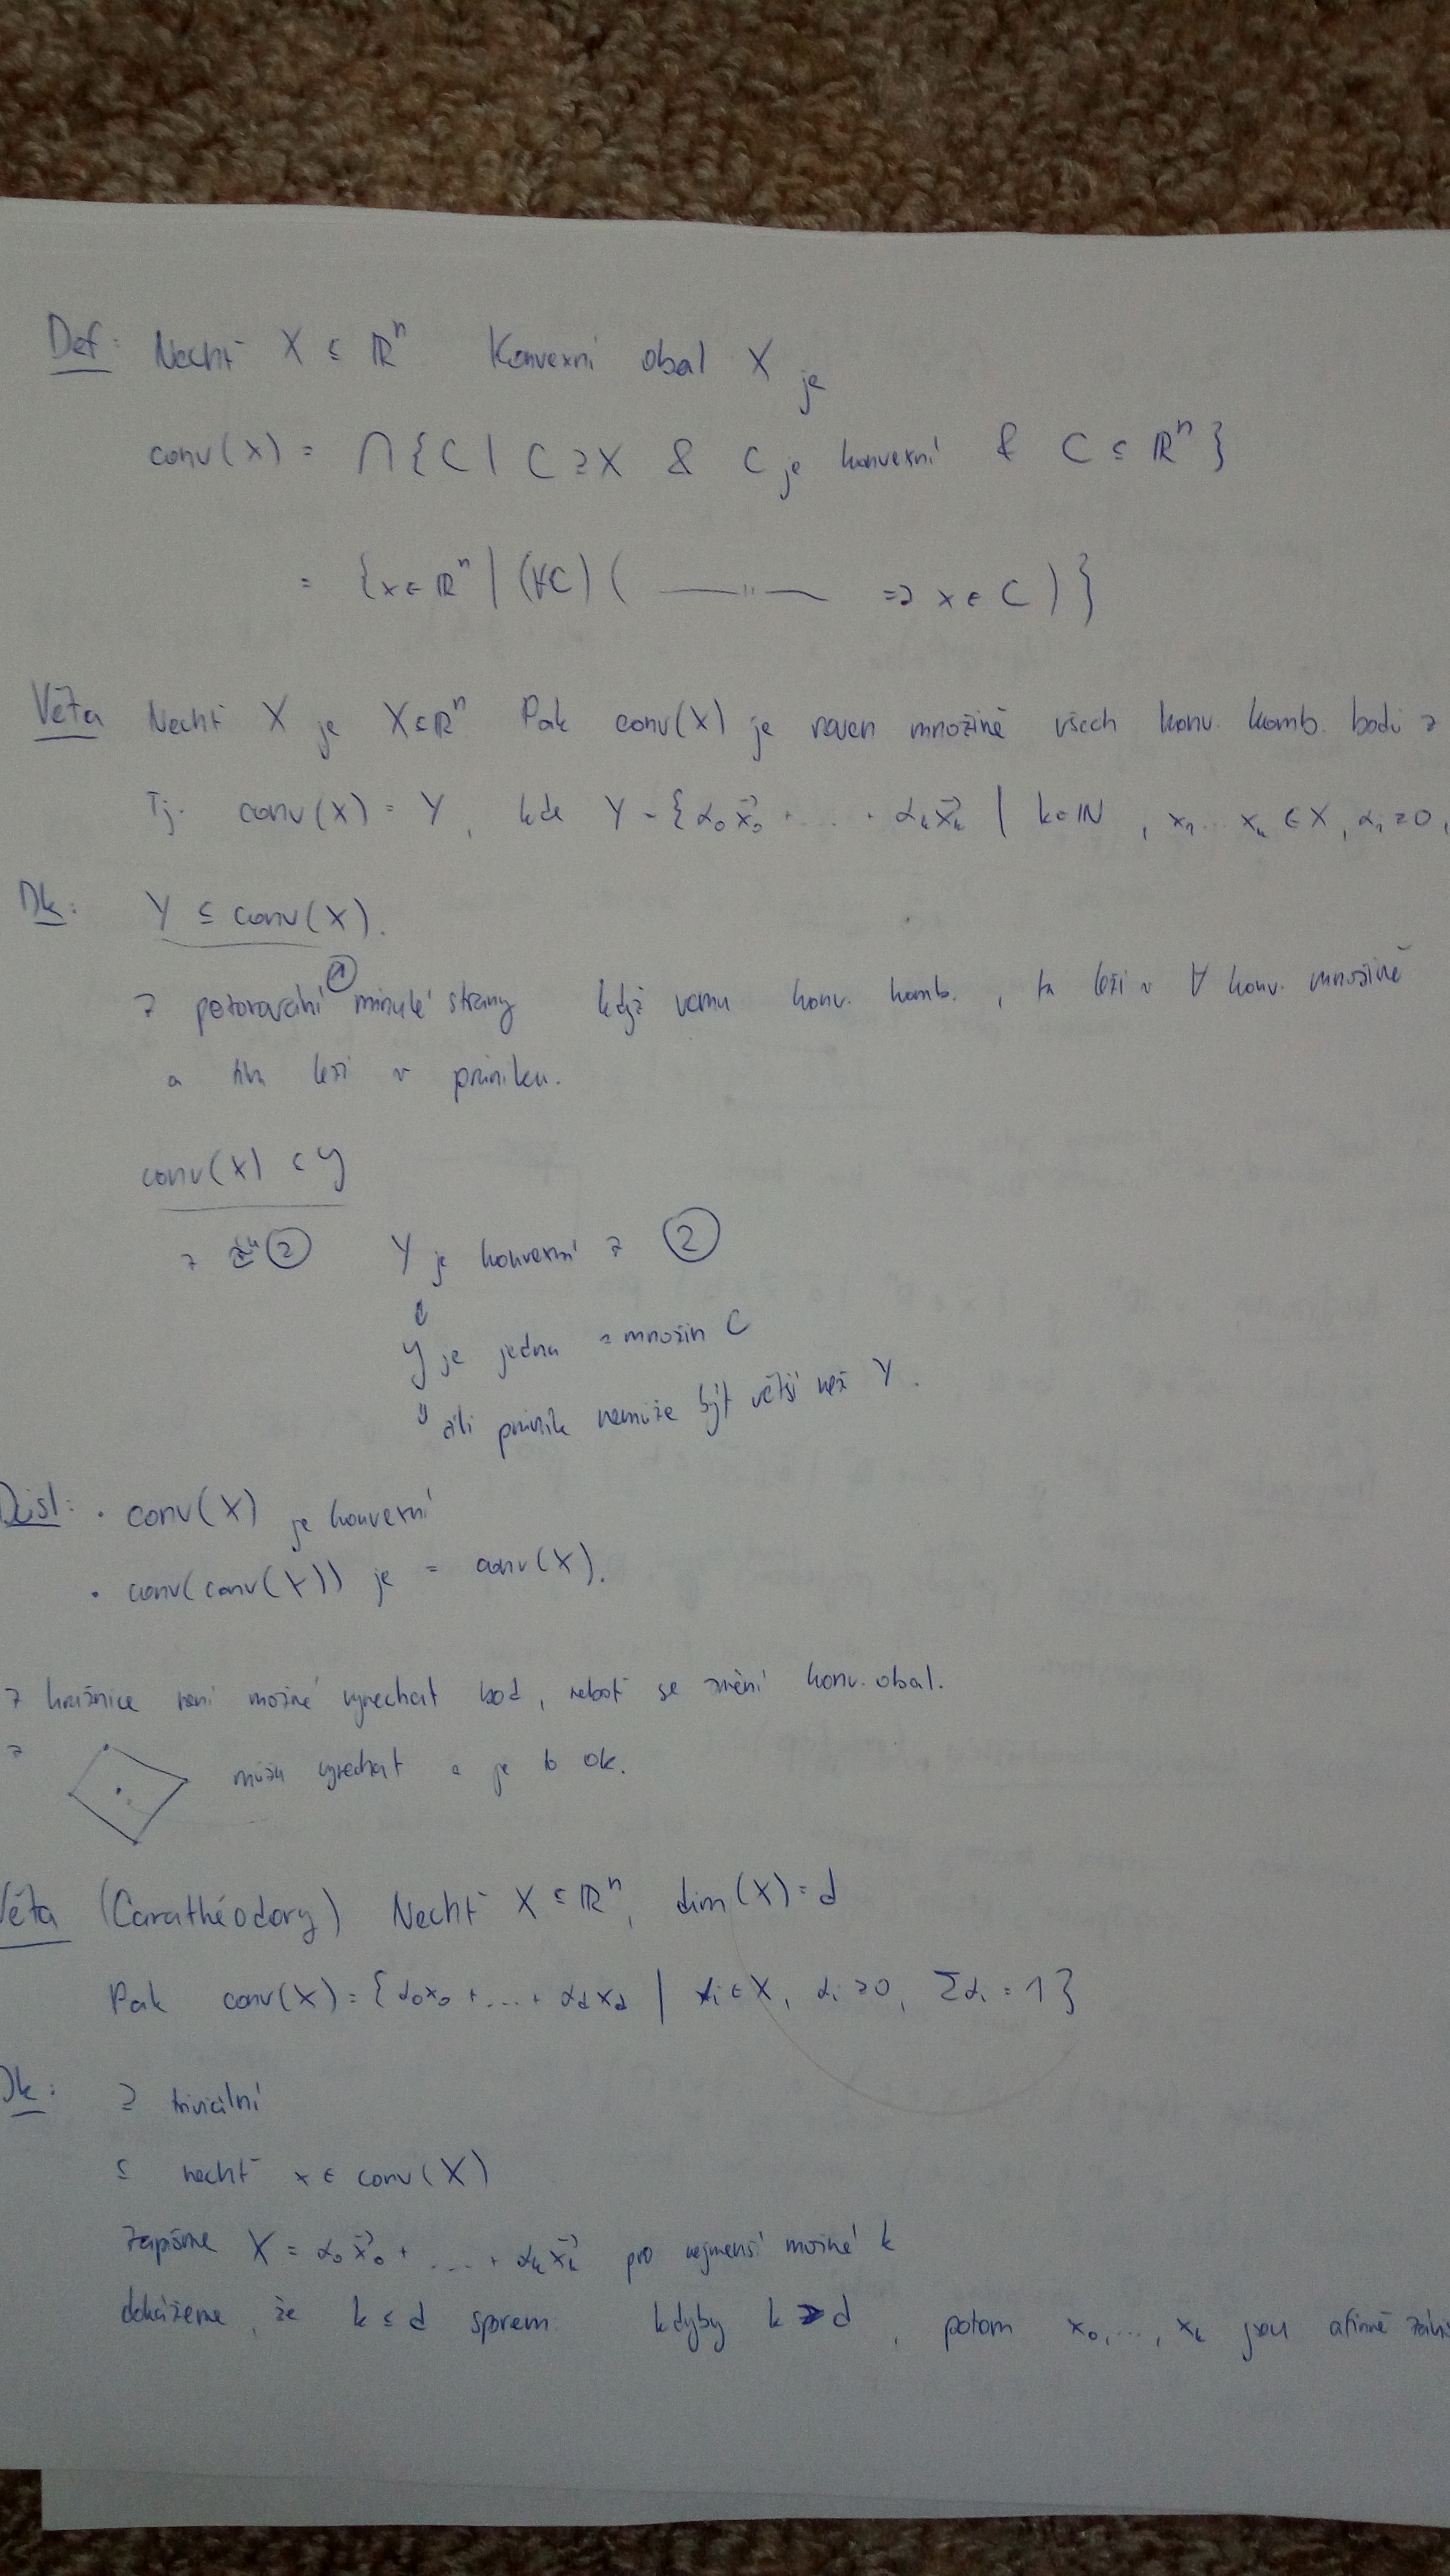 Def: Nechť X ⊆ ℝⁿ Konvexní obal X je
conv(X) = ∩{C | C ⊇ X & C je konvexní & C ⊆ ℝⁿ}
= {x ∈ ℝⁿ | (∀C)( —"— => x ∈ C)}
Věta Nechť X je X ⊆ ℝⁿ Pak conv(X) je roven množině všech konv. komb. bodů z
Tj. conv(X) = Y, kde Y = {α₀x⃗₀ + ... + αₖx⃗ₖ | k ∈ ℕ, x₁ ... xₖ ∈ X, αᵢ ≥ 0,
Dk: Y ⊆ conv(X).
z pozorování ① minulé strany když vemu konv. komb., ta leží v ∀ konv. množině
a tím leží v průniku.
conv(X) ⊆ Y
z ②
Y je konvexní z ②
⇓
Y je jedna z množin C
⇓ čili průnik nemůže být větší než Y.
Důsl: • conv(X) je konvexní
• conv(conv(X)) je = conv(X).
z kružnice není možné vynechat bod, neboť se změní konv. obal.
z můžu vynechat a je to ok.
Věta (Carathéodory) Nechť X ⊆ ℝⁿ, dim(X) = d
Pak conv(X) = {α₀x₀ + ... + α_d x_d | xᵢ ∈ X, αᵢ ≥ 0, Σαᵢ = 1}
Dk: ⊇ triviální
⊆ nechť x ∈ conv(X)
zapišme X = α₀x⃗₀ + .... + αₖx⃗ₖ pro nejmenší možné k
dokážeme, že k ≤ d sporem. kdyby k > d, potom x₀, ..., xₖ jsou afinně